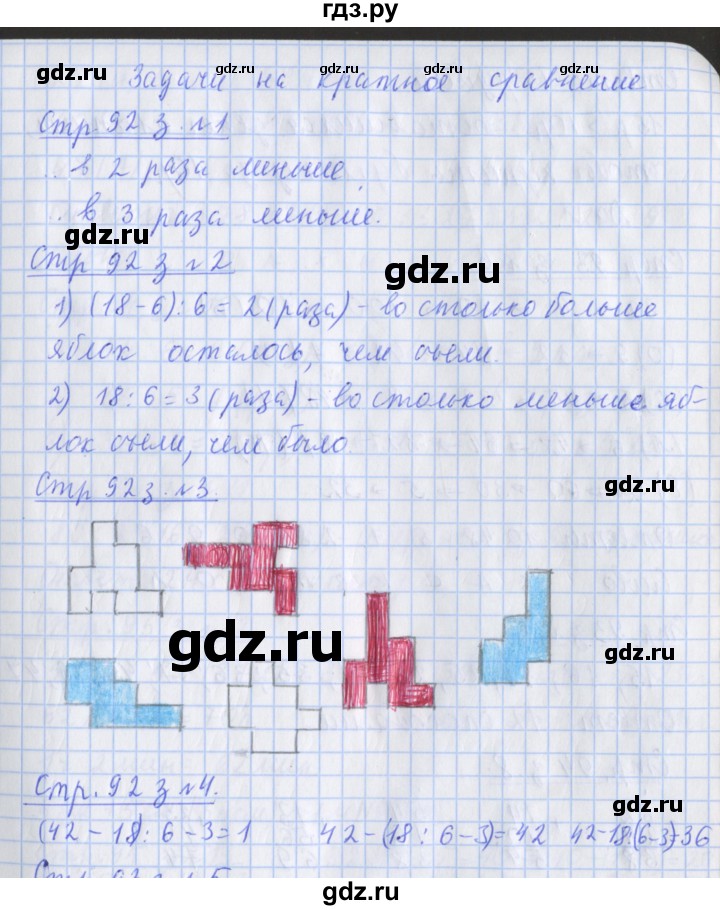 гдз.ру
Задачи на кратное сравнение
Стр 92 з. №1
.. в 2 раза меньше.
.. в 3 раза меньше.
Стр 92 з №2
1) (18-6):6=2(раза)-во столько больше
яблок осталось, чем съели.
2) 18:6=3(раза)-во столько меньше яб-
лок съели, чем было.
Стр 92 з. №3.
Стр. 92 з №4.
(42-18):6-3=1 42-(18:6-3)=42 42-18:(6-3)=36
gdz.ru
gdz.ru
gdz.ru
gdz.ru
gdz.ru
gdz.ru
gdz.ru
gdz.ru
gdz.ru
gdz.ru
gdz.ru
gdz.ru
gdz.ru
gdz.ru